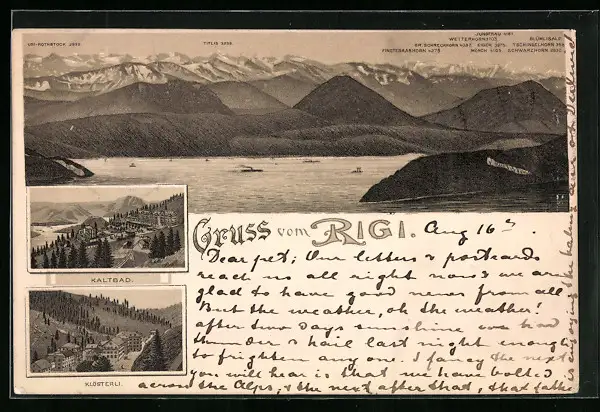 URI-ROTHSTOCK 2932.
TITLIS 3239.
JUNGFRAU 4167.
WETTERHORN 3703. BLÜMLISALP
GR. SCHRECKHORN 4082 EIGER 3975 TSCHINGELHORN 3581
FINSTERAARHORN 4275 MÖNCH 4105 SCHWARZHORN 2930
KALTBAD.
KLÖSTERLI.
Gruss vom RIGI. Aug 16th.
Dear pet; Our letters & postcards
reach us all right now & we are
glad to have good news from all
But the weather, oh the weather!
After two days sunshine we had
thunder & hail last night enough
to frighten any one. I fancy the next
you will hear is that we have bolted
across the Alps, & the next after that, that father
is enjoying the